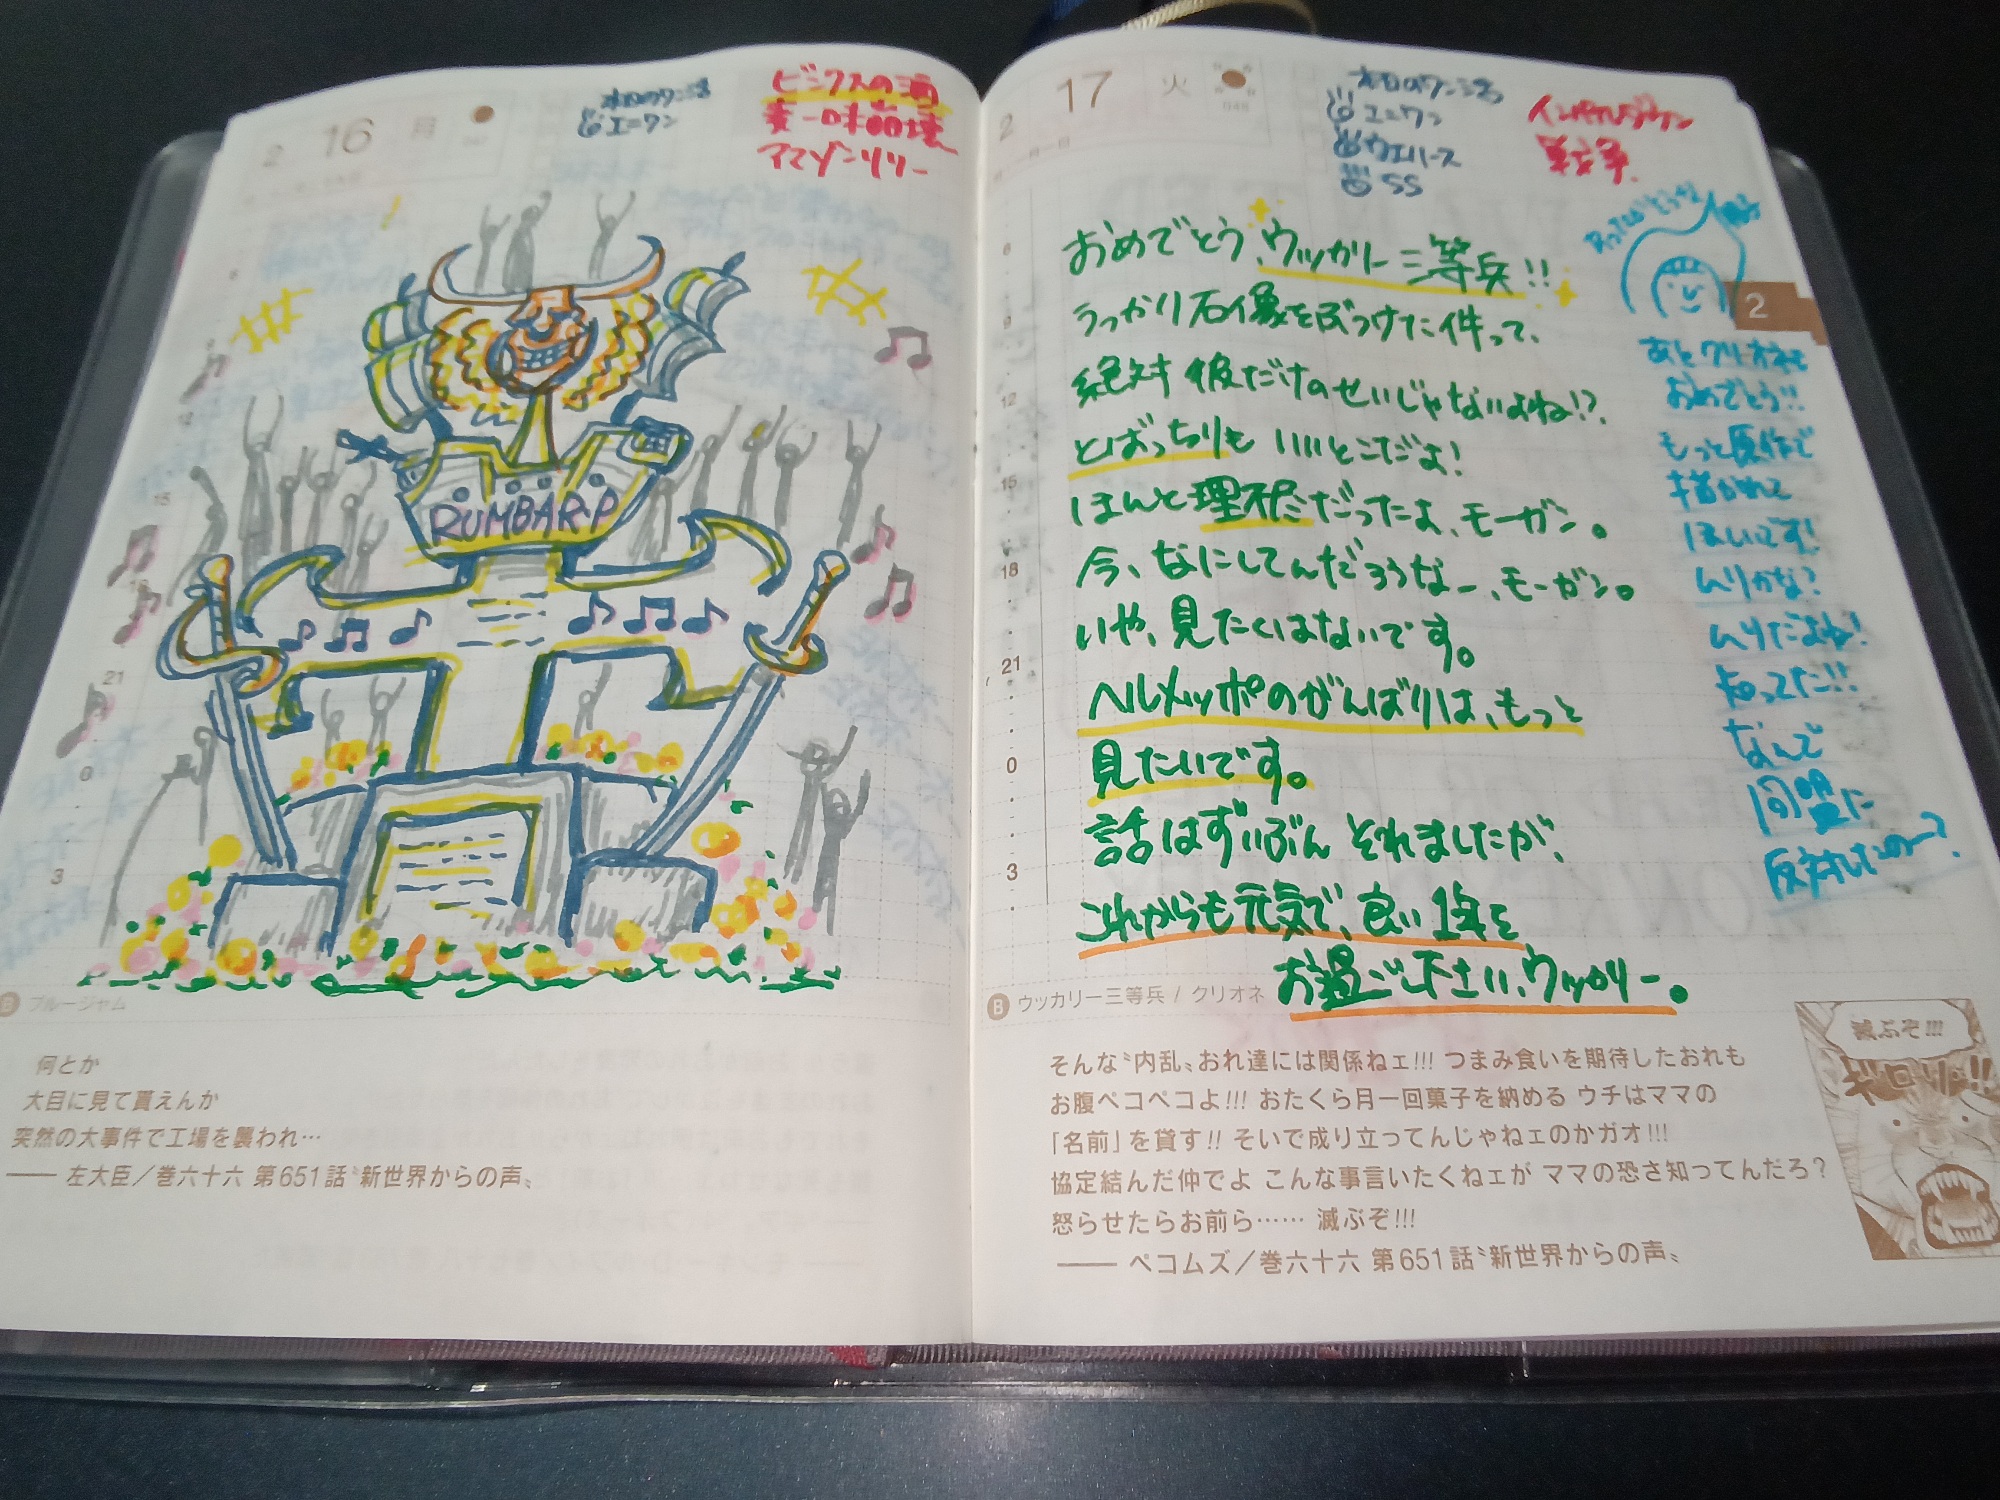 2 16 月
本日のワンピ活
エニワン
ビンクスの酒
麦一味崩壊
アマゾンリリー
RUMBAR・P
15
18
21
0
3
B ブルージャム
何とか
大目に見て貰えんか
突然の大事件で工場を襲われ…
―― 左大臣／巻六十六 第651話〝新世界からの声〟
2 17 火
本日のワンピ活
エニワン
ウエハース
SS
インペルダウン
戦争
6
9
12
15
18
21
0
3
おめでとう、ウッカリー三等兵!!
うっかり石像をぶつけた件って、
絶対彼だけのせいじゃないよね!?
とばっちりもいいとこだよ!
ほんと理不尽だったよ、モーガン。
今、なにしてんだろうなー、モーガン。
いや、見たくはないです。
ヘルメッポのがんばりは、もっと
見たいです。
話はずいぶんそれましたが、
これからも元気で、良い1年を
お過ご下さい、ウッカリー。
2
あとクリオネも
おめでとう!!
もっと原作で
描かれて
ほしいです!
ムリかな?
ムリだよね!
知ってた!!
なんで
同盟に
反対したの〜?
B ウッカリー三等兵 / クリオネ
そんな〝内乱〟おれ達には関係ねェ!!! つまみ食いを期待したおれも
お腹ペコペコよ!!! おたくら月一回菓子を納める ウチはママの
「名前」を貸す!! そいで成り立ってんじゃねェのかガオ!!!
協定結んだ仲でよ こんな事言いたくねェが ママの恐さ知ってんだろ?
怒らせたらお前ら…… 滅ぶぞ!!!
―― ペコムズ／巻六十六 第651話〝新世界からの声〟
滅ぶぞ!!!
ギロリ!!